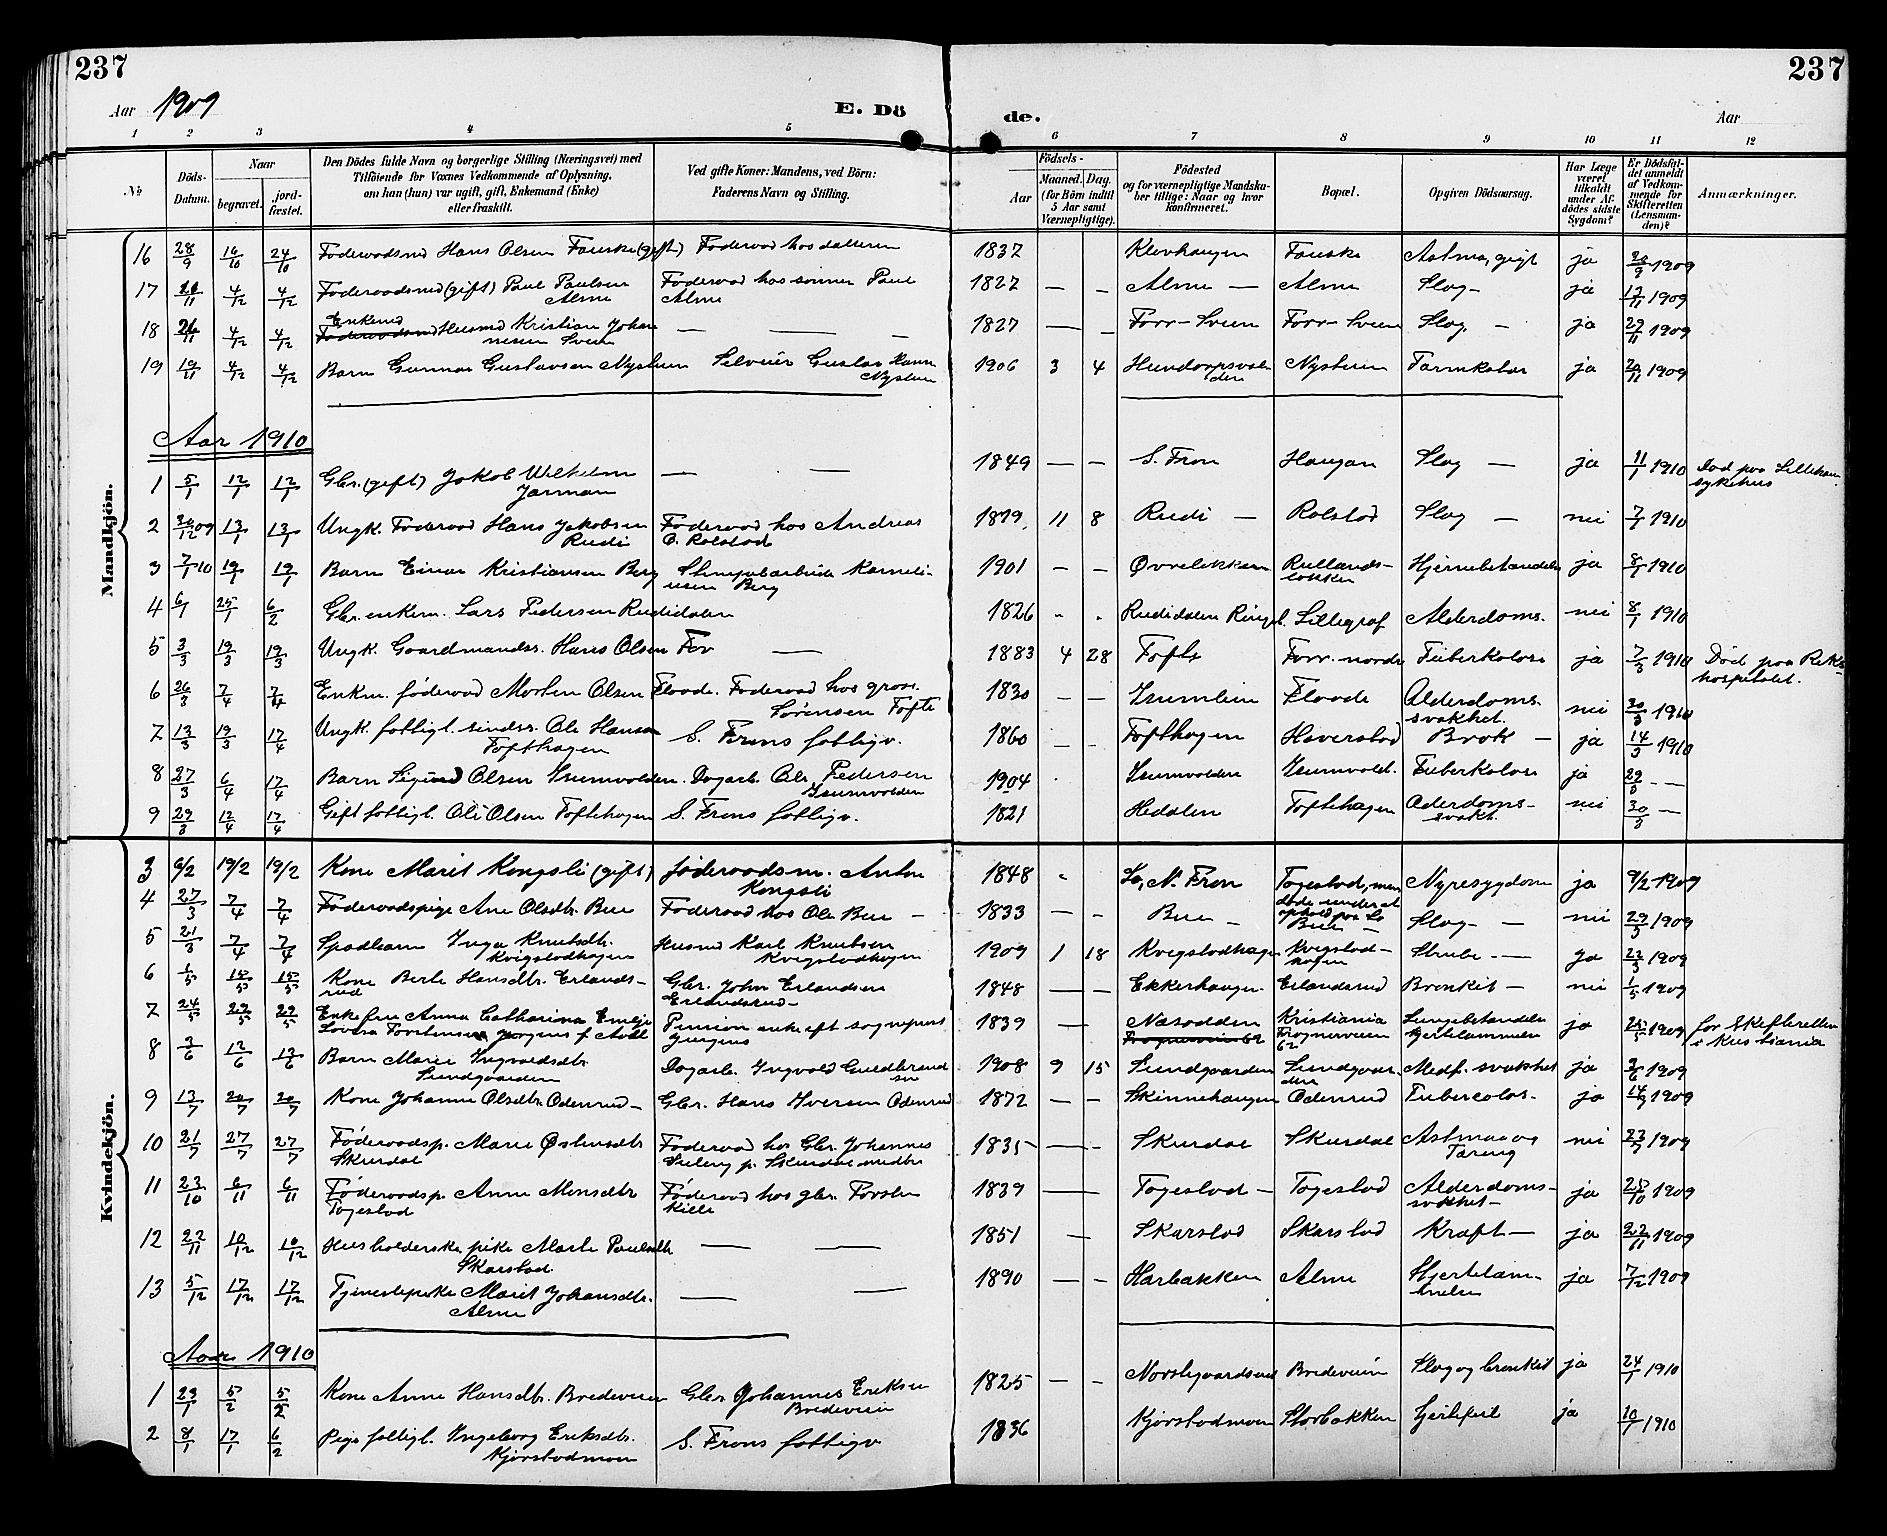 237
237
Aar 1909
E. Dö
de.
Aar
1 2 3 4 5 6 7 8 9 10 11 12
№
Döds-
Datum.
Naar
begravet.
jord-
fæstet.
Den Dödes fulde Navn og borgerlige Stilling (Næringsvei) med
Tilföiende for Voxnes Vedkommende af Oplysning,
om han (hun) var ugift, gift, Enkemand (Enke)
eller fraskilt.
Ved gifte Koner: Mandens, ved Börn:
Faderens Navn og Stilling.
Födsels-
Aar
Maaned. Dag.
(for Börn indtil
5 Aar samt
Værnepligtige).
Födested
og for værnepligtige Mandska-
ber tillige: Naar og hvor
konfirmeret.
Bopæl.
Opgiven Dödsaarsag.
Har Læge
været
tilkaldt
under Af-
dödes sidste
Sygdom?
Er Dödsfal-
det anmeldt
af Vedkom-
mende for
Skifteretten
(Lensman-
den)?
Anmærkninger.
Mandkjön.
16 28/9 16/10 24/10 Foderaadsmd Hans Olsen Fauske (gift) Foderaad hos datteren 1837 Klevhaugen Fauske Astma, gigt ja 1909
17 4/12 4/12 Foderaadsmd (gift) Paul Paulsen Alme Foderaad hos sønnen Paul Alme 1827 — - Alme — Alme Slag - ja 1909
18 4/12 4/12 Enkemd Foderaadsmd Husmd Kristian Johannesen Sveen — — — 1827 — - Forr-Sveen Forr-Sveen Slag - ja 29/11 1909
19 19/11 4/12 4/12 Barn Gunnar Gustavsen Nysteen Selveier Gustav Nysteen 1906 3 4 Nysteen ja 20/11 1909
Aar 1910
1 5/1 12/1 12/1 Gbr. (gift) Jakob Wilhelm Jarmann — — 1849 — - S. Fron Haugan Slag — ja 11/1 1910 Død paa Lilleham. sykehus
2 30/12 09 13/1 13/1 Ungk. Foderaad Hans Jakobsen Rudi Foderaad hos Andreas O. Rolstad 1819 11 8 Rudi — Rolstad Slag — nei 7/1 1910
3 7/1 10 19/1 19/1 Barn Einar Kristiansen Berg Berg 1901 - - Øvrelykken Hjernebetændelse ja 8/1 1910
4 6/1 25/1 6/2 Gbr. enkem. Lars Pedersen Rudidalen 1826 - . Rudidalen Ringeb. Lillegraf Alderdoms. nei 8/1 1910
5 3/3 19/3 19/3 Ungk. Gaardmandss. Hans Olsen For — 1883 4 28 Tofte Forr. nordre Tuberkolose ja 7/3 1910 Død paa Riks-hospitalet.
6 26/3 7/4 7/4 Enkm. føderaad Morten Olsen Flaade. Foderaad hos Sørensen Tofte 1830 - - Flaade Alderdoms-svakhet. nei 30/3 1910
7 13/3 19/3 17/4 Ungk. fattigl. sindss. Ole Hansen Tofthagen S. Frons fattigv. 1860 - - Tofthagen Haverstad Brok — ja 14/3 1910
8 27/3 6/4 17/4 Barn Sigurd Olsen Isumvolden. Dagarb. Ole Pedersen Isumvolden 1904 . Isumvolden Isumvold. Tuberkolose ja 29/3 - -
9 29/3 12/4 17/4 Gift fattigl. Ole Olsen Toftehagen S. Frons fattigv. 1821 Hedalen Toftehagen Alderdoms-svakt. nei 30/3 —
Kvindekjön.
3 6/2 19/2 19/2 Kone Marit Kongsli (gift) føderaadsm. Anton Kongsli 1848 - Lo, N. Fron Togestad, men døde under et ophold paa Lo Nyresygdom ja 9/2 1909
4 27/3 7/4 7/4 Foderaadspige Ane Olsdtr. Bue Foderaad hos Ole Bue — 1833 — - Bue - Bue — Slag - — nei 29/3 1909
5 21/3 7/4 7/4 Spædbarn Inga Knutsdtr. Kvigstadhagen Husmd Karl Knutsen Kvigstadhagen 1909 1 18 Kvigstadhagen Kvigstad-hagen Strube - — ja 23/3 1909
6 15/5 15/5 Kone Berte Hansdtr. Erlandsrud Gbr. John Erlandsen Erlandsrud - 1848 — - Ekkerhaugen Erlandsrud Bronkit — nei 1/5 1909
7 24/5 29/5 29/5 Enkefrue Anna Catharina Emilje Lovisa Torstensen Jørgens f. Pension enke eft sogneprest Jørgens 1839 — - Næsodden Frognerveien 62 Kristiania Frognerveien 62 Lungebetændelse hjertelammelse ja 25/5 1909 for Skifteretten i Kristiania
8 3/6 12/6 12/6 Barn Marie Ingvaldsdtr. Sundgaarden Dagarb. Ingvald Guldbrandsen 1908 9 15 Sundgaarden Sundgaarden Medf. svakhet ja 3/6 1909
9 13/7 20/7 20/7 Kone Johanne Olsdtr. Odenrud — Gbr. Hans Iversen Odenrud 1872 — - Skinnehaugen Odenrud Tubercolos- ja 14/7 1909
10 21/7 27/7 27/7 Føderaadsp. Marie Østensdtr Skurdal Foderaad hos Gbr. Johannes p. Skurdal nedre 1835 — - Skurdal Skurdal Astma og Tæring nei 23/7 1909
11 23/10 6/11 6/11 Føderaadsp. Anne Monsdtr Togestad Føderaad hos gbr. Torsten Kille 1839 — Togestad — Togestad Alderdoms-svakhet- ja 25/10 1909
12 22/11 10/12 10/12 Husholderske pike Marte Paulsdtr Skarstad. — — 1851 — Skarstad Skarstad Kræft — ja 22/11 1909
13 5/12 17/12 17/12 Tjenestepike Marit Johansdtr. Alme — — 1890 — - Harbakken Alme Hjertelammelse ja 7/12 1909
Aar 1910
1 23/1 5/2 5/2 Kone Anne Hansdtr. Bredeveien Gbr. Johannes Eriksen Bredeveien 1825 — - Bredeveien Slag og bronkit ja 24/1 1910
2 8/1 17/1 6/2 Pige fattigl. Ingeborg Eriksdtr. Kjørstadmoen S. Frons fattigv 1836 Kjørstadmoen Storbakken Hjertefeil ja 10/1 1910